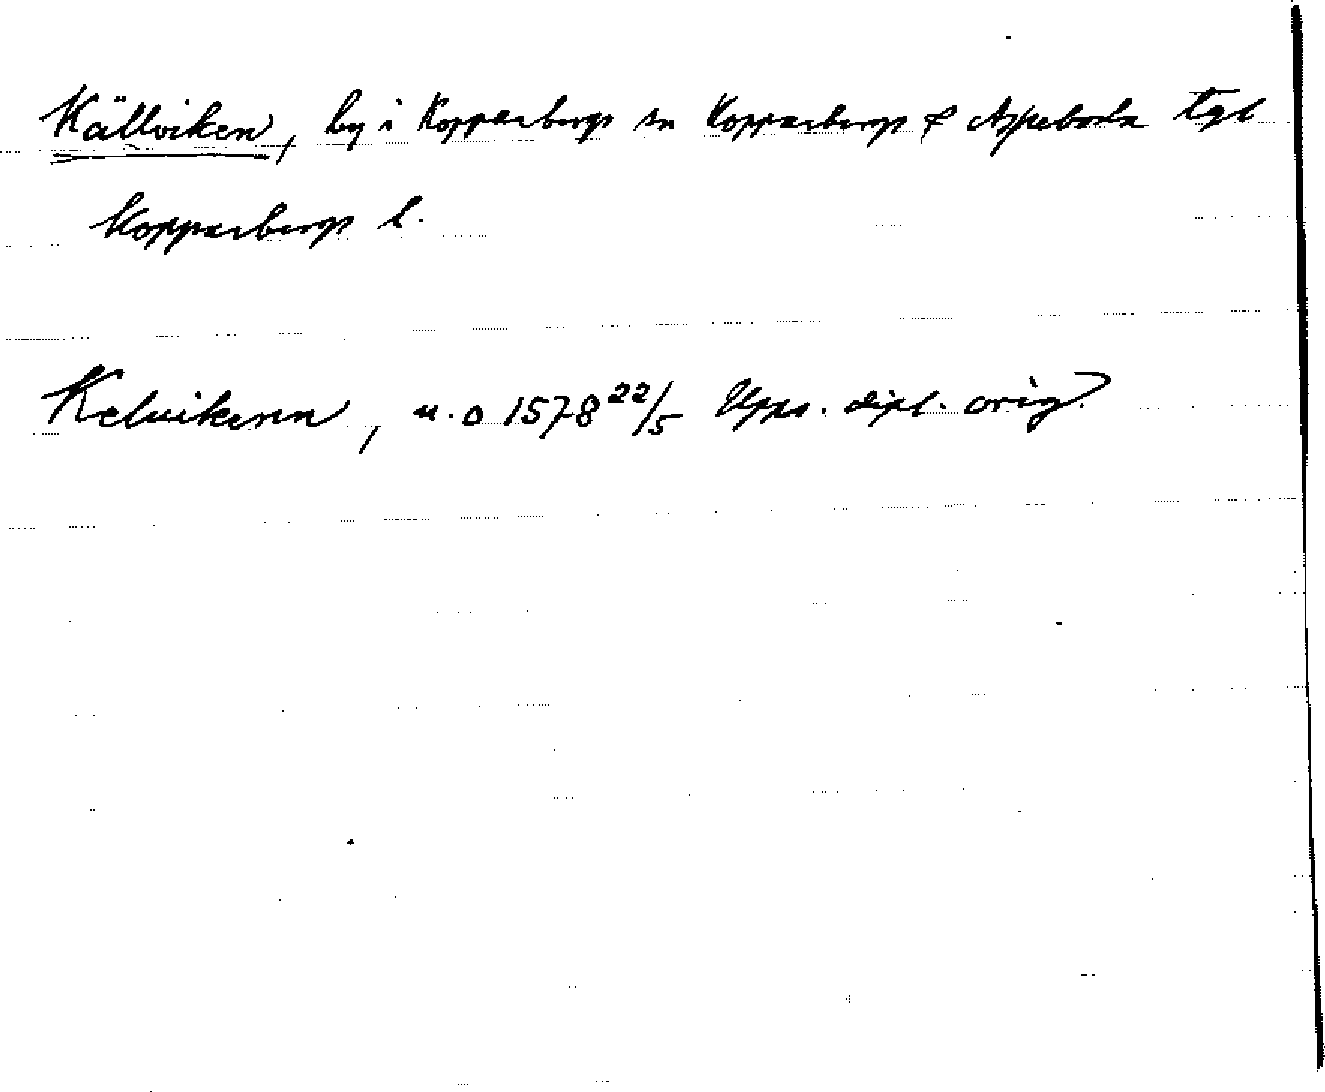 Källviken, by i Kopparbergs sn Kopparbergs & Aspeboda tgl
Kopparbergs l.
Keluikenn, u.o 1578 22/5 Upps. dipl. orig.